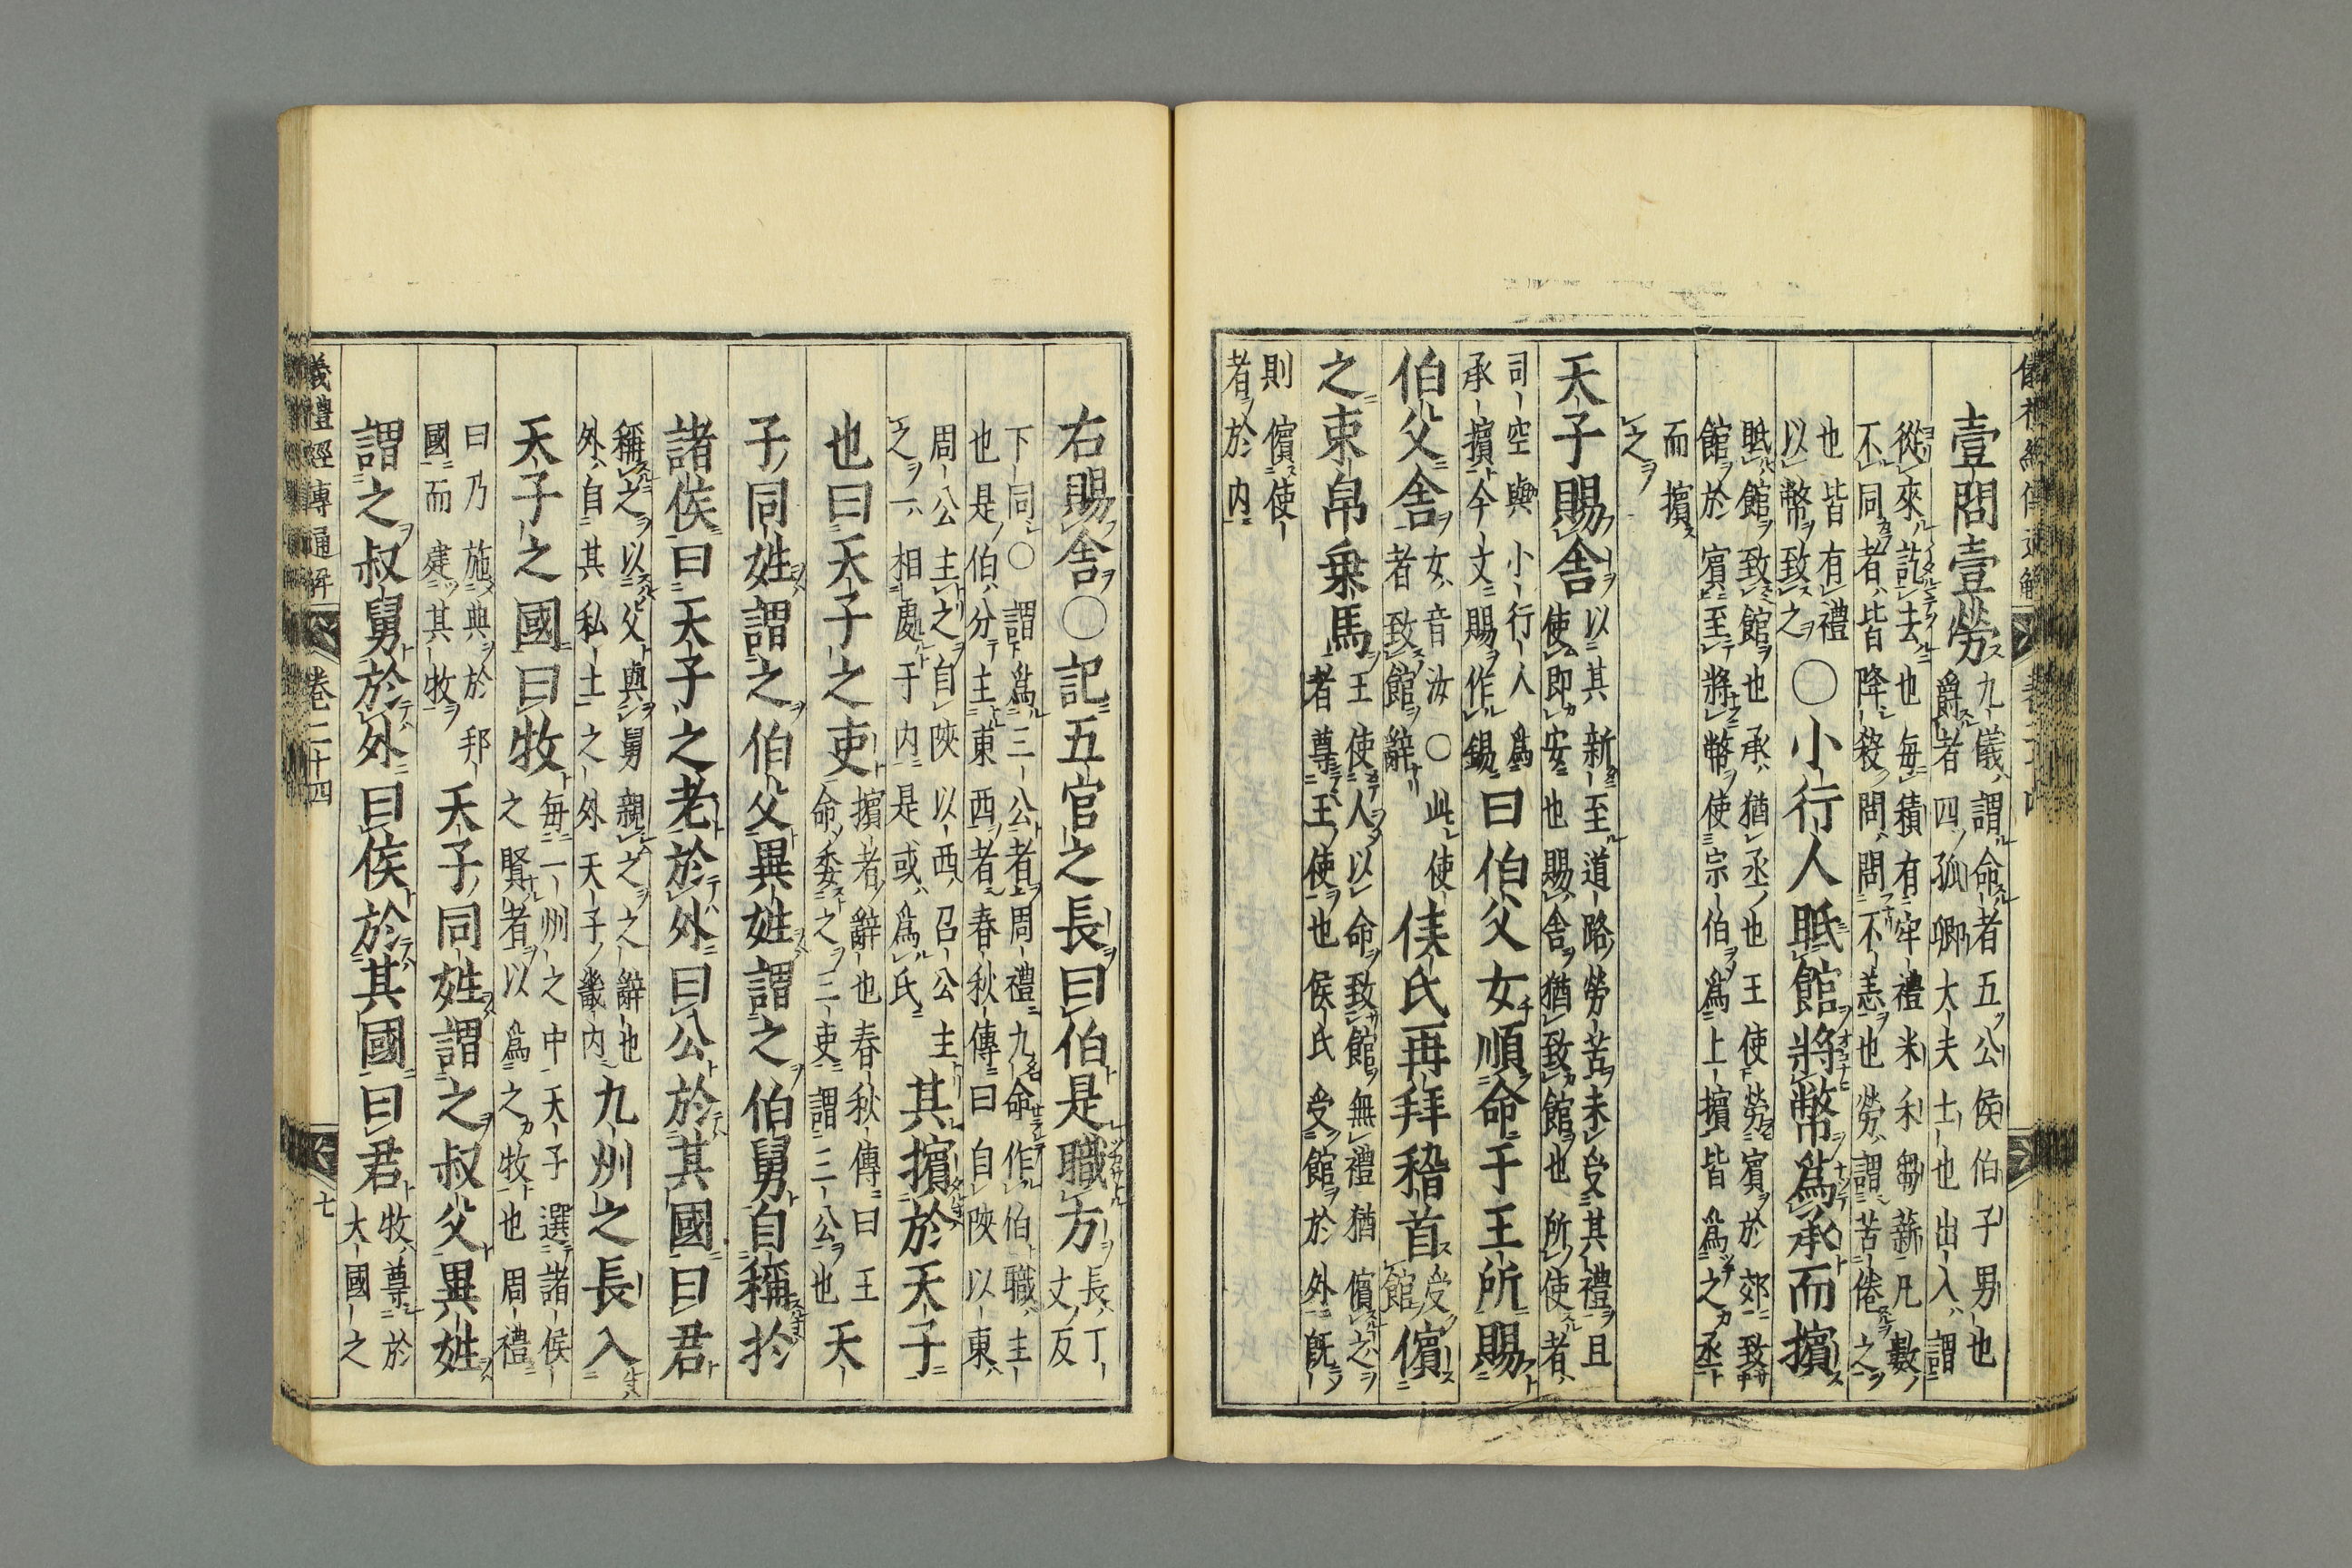 壹問壹勞九儀謂命者五公侯伯子男也
爵者四孤卿大夫士也出入謂
從來訖去也每積有牢禮米禾芻薪凡數
不同者皆降殺問問不恙也勞謂苦倦之
也皆有禮
以幣致之〇小行人眡館將幣爲承而擯
眡館致館也承猶丞也王使勞賓於郊致
館於賓至將幣使宗伯爲上擯皆爲之丞
而擯
之
天子賜舍以其新至道路勞苦未受其禮且
使即安也賜舍猶致館也所使者
司空與小行人爲
承擯今文賜作錫曰伯父女順命于王所賜
伯父舍女音汝〇此使
者致館辭侯氏再拜稽首受
館儐
之束帛乘馬王使人以命致館無禮猶儐之
者尊王使也侯氏受館於外既
則儐使
者於内
右賜舍〇記五官之長曰伯是職方長丁
丈反
下同〇謂爲三公者周禮九命作伯職主
也是伯分主東西者春秋傳曰自陝以東
周公主之自陝以西召公主
之一相處于内是或爲氏其擯於天子
也曰天子之吏擯者辭也春秋傳曰王
命委之三吏謂三公也天
子同姓謂之伯父異姓謂之伯舅自稱於
諸侯曰天子之老於外曰公於其國曰君
稱之以父與舅親之之辭也
外自其私土之外天子畿内九州之長入
天子之國曰牧每一州之中天子選諸侯
之賢者以爲之牧也周禮
曰乃施典於邦
國而建其牧天子同姓謂之叔父異姓
謂之叔舅於外曰侯於其國曰君牧尊於
大國之
儀禮經傳通解
卷二十四
七